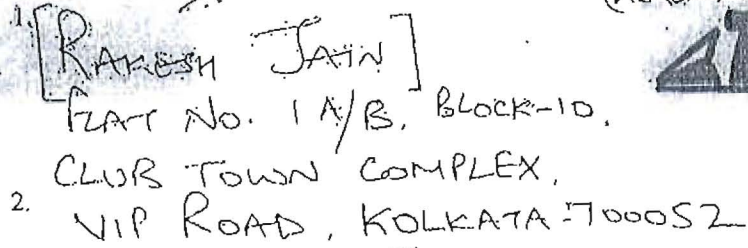 1. [RAKESH JAIN]
FLAT NO. 1A/B, BLOCK-10,
CLUB TOWN COMPLEX,
2. VIP ROAD, KOLKATA-700052